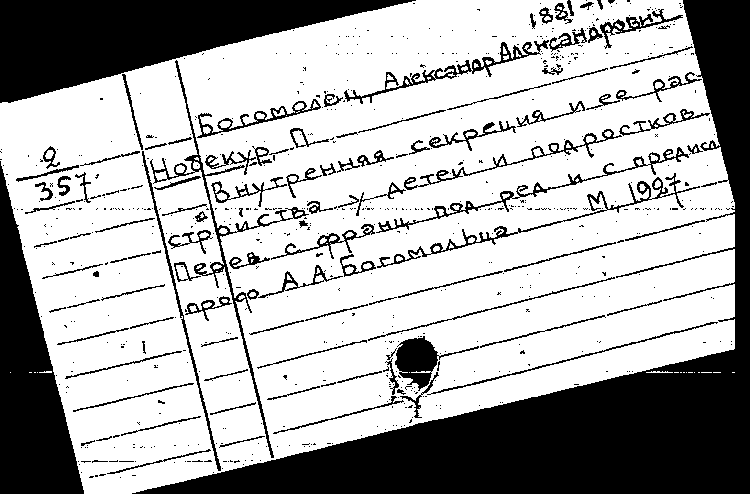 1881-19
Богомолец, Александр Александрович
2
357.
Нобекур, П
Внутренняя секреция и ее рас-
стройства у детей и подростков.
Перев. с франц. под ред и с предисл
проф. А.А Богомольца. М., 1927.